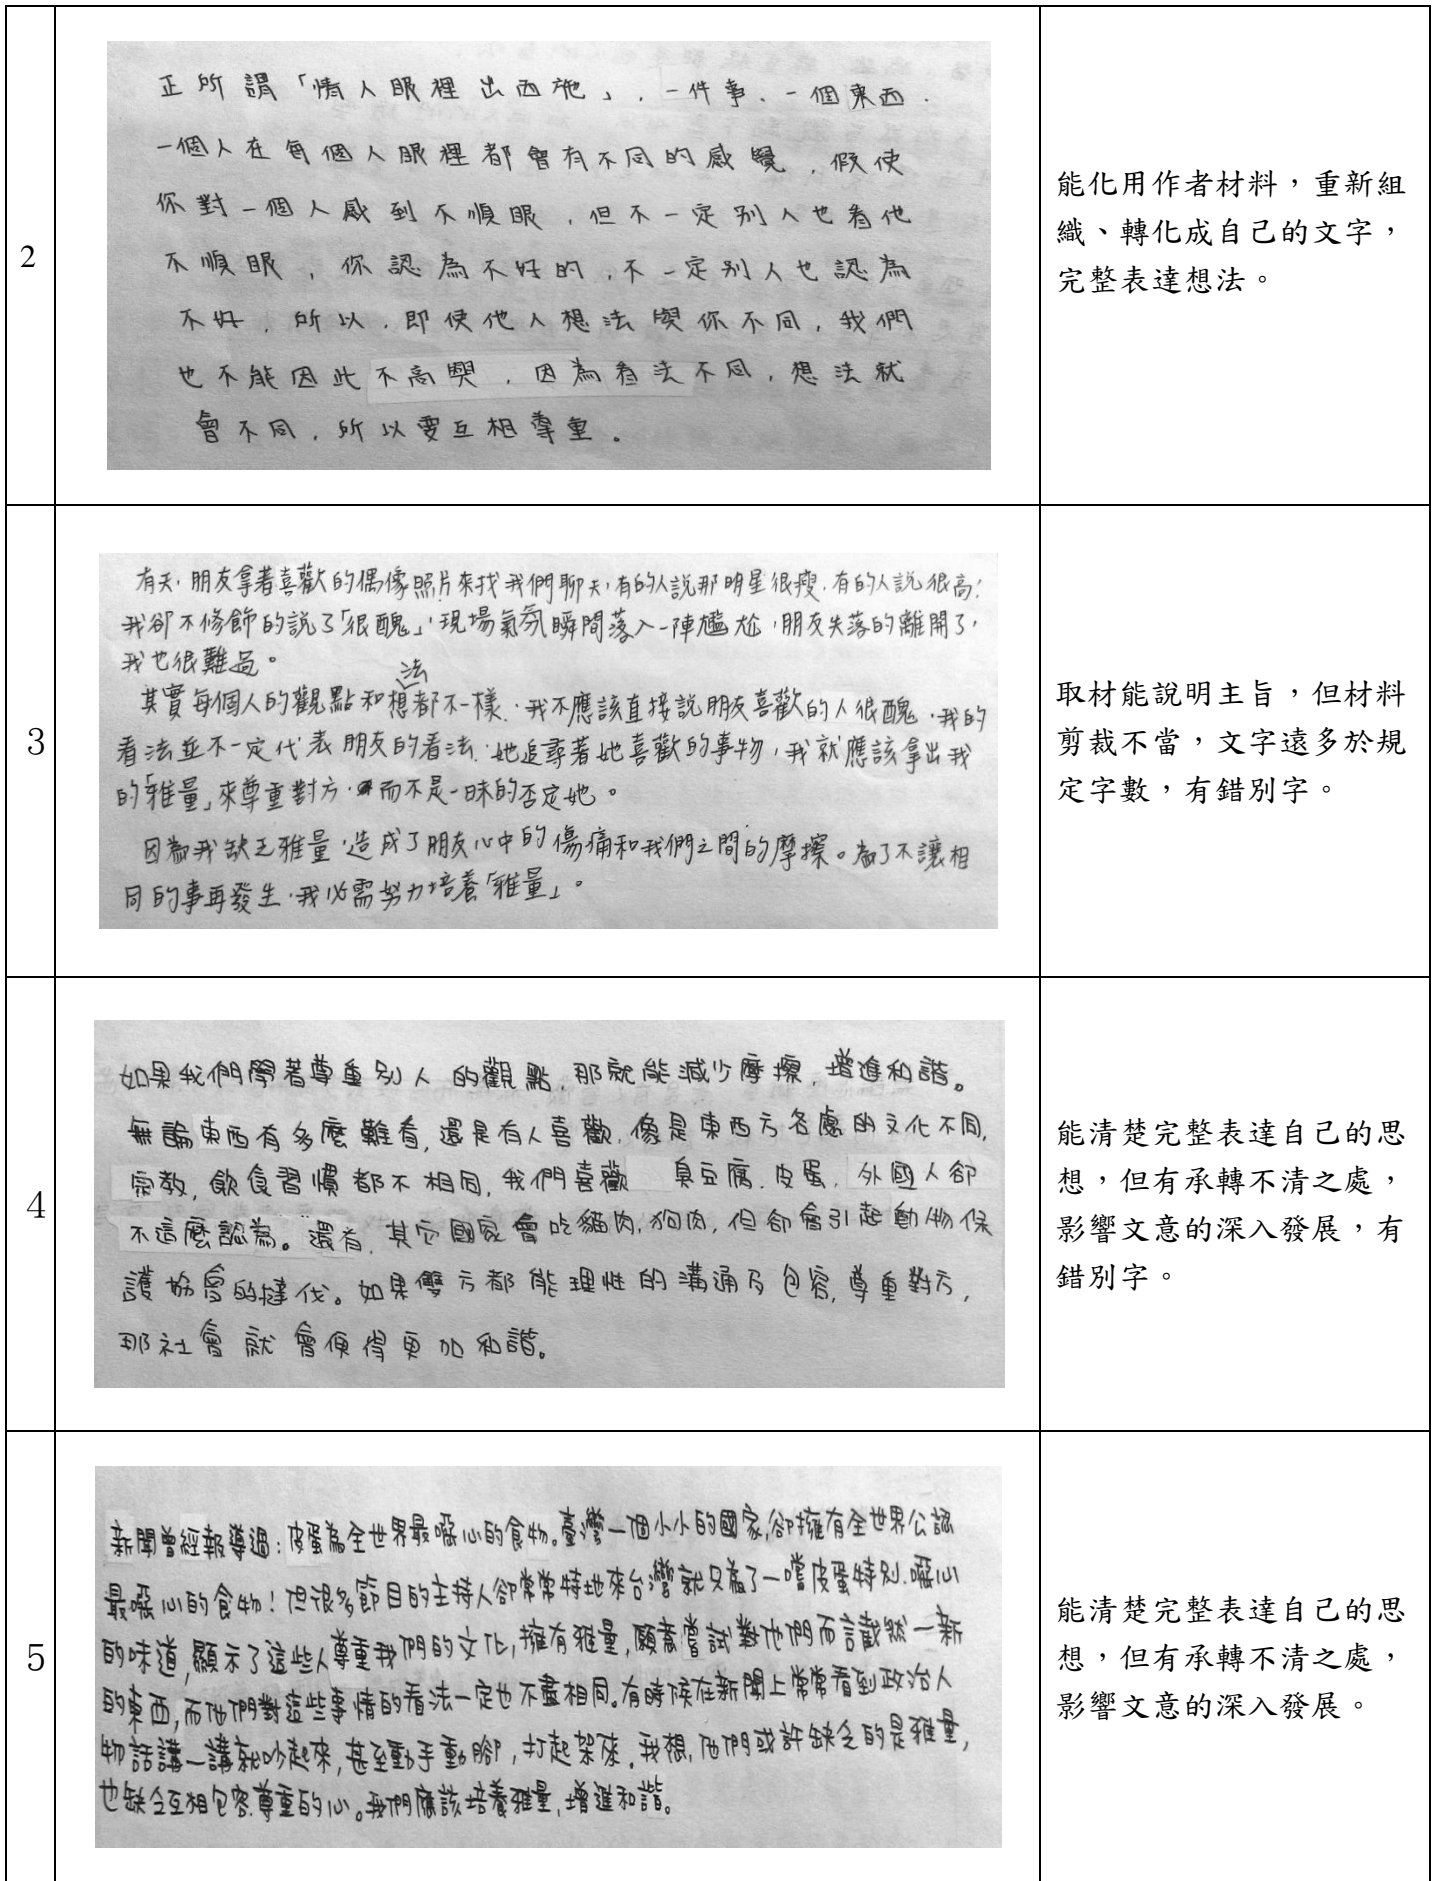 2
正所謂「情人眼裡出西施」,一件事、一個東西、
一個人在每個人眼裡都會有不同的感覺,假使
你對一個人感到不順眼,但不一定別人也看他
不順眼,你認為不好的,不一定別人也認為
不好,所以,即使他人想法與你不同,我們
也不能因此不高興,因為看法不同,想法就
會不同,所以要互相尊重。
能化用作者材料,重新組
織、轉化成自己的文字,
完整表達想法。
3
有天,朋友拿著喜歡的偶像照片來找我們聊天,有的人說那明星很瘦,有的人說很高,
我卻不修飾的說了「很醜」,現場氣氛瞬間落入一陣尷尬,朋友失落的離開了,
我也很難過。
其實每個人的觀點和想法都不一樣,我不應該直接說朋友喜歡的人很醜,我的
看法並不一定代表朋友的看法,她追尋著她喜歡的事物,我就應該拿出我
的「雅量」來尊重對方,而不是一昧的否定她。
因為我缺乏雅量,造成了朋友心中的傷痛和我們之間的摩擦。為了不讓相
同的事再發生,我必需努力培養「雅量」。
取材能說明主旨,但材料
剪裁不當,文字遠多於規
定字數,有錯別字。
4
如果我們學著尊重別人的觀點,那就能減少摩擦,增進和諧。
無論東西有多麼難看,還是有人喜歡,像是東西方各處的文化不同,
宗教,飲食習慣都不相同,我們喜歡 臭豆腐、皮蛋,外國人卻
不這麼認為。還有,其它國家會吃貓肉,狗肉,但卻會引起動物保
護協會的撻伐。如果雙方都能理性的溝通及包容,尊重對方,
那社會就會便得更加和諧。
能清楚完整表達自己的思
想,但有承轉不清之處,
影響文意的深入發展,有
錯別字。
5
新聞曾經報導過:皮蛋為全世界最噁心的食物。臺灣一個小小的國家,卻擁有全世界公認
最噁心的食物!但很多節目的主持人卻常常特地來台灣就只為了一嚐皮蛋特別、噁心
的味道,顯示了這些人尊重我們的文化,擁有雅量,願意嘗試對他們而言截然一新
的東西,而他們對這些事情的看法一定也不盡相同。有時候在新聞上常常看到政治人
物話講一講就吵起來,甚至動手動腳,打起架來。我想,他們或許缺乏的是雅量,
也缺乏互相包容尊重的心。我們應該培養雅量,增進和諧。
能清楚完整表達自己的思
想,但有承轉不清之處,
影響文意的深入發展。